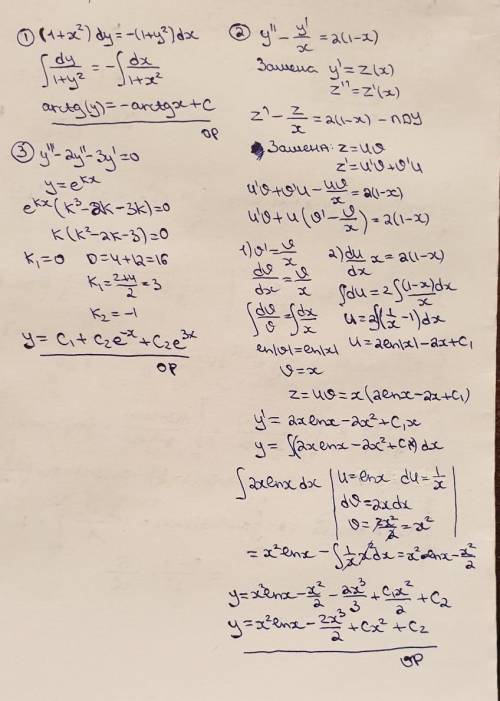 ① (1+x²)dy=-(1+y²)dx
∫dy/(1+y²) = -∫dx/(1+x²)
arctg(y)=-arctgx+C
ОР
③ y'''-2y''-3y'=0
y=e^{kx}
e^{kx}(k³-2k-3k)=0
k(k²-2k-3)=0
k₁=0 D=4+12=16
k₁=(2+4)/2=3
k₂=-1
y=C₁+C₂e^{-x}+C₂e^{3x}
ОР
② y''-y'/x=2(1-x)
Замена y'=z(x)
z''=z'(x)
z'-z/x=2(1-x) - ЛДУ
Замена: z=uv
z'=u'v+v'u
u'v+v'u-uv/x=2(1-x)
u'v+u(v'-v/x)=2(1-x)
1) v'=v/x
dv/dx=v/x
∫dv/v=∫dx/x
ln|v|=ln|x|
v=x
2) du/dx x=2(1-x)
∫du=2∫(1-x)dx/x
u=2∫(1/x-1)dx
u=2ln|x|-2x+C₁
z=uv=x(2lnx-2x+C₁)
y'=2xlnx-2x²+C₁x
y=∫(2xlnx-2x²+C₁x)dx
∫2xlnxdx | u=lnx du=1/x
dv=2xdx
v=2x²/2=x² |
=x²lnx-∫1/x x²dx=x²lnx-x²/2
y=x²lnx-x²/2-2x³/3+C₁x²/2+C₂
y=x²lnx-2x³/2+Cx²+C₂
ОР